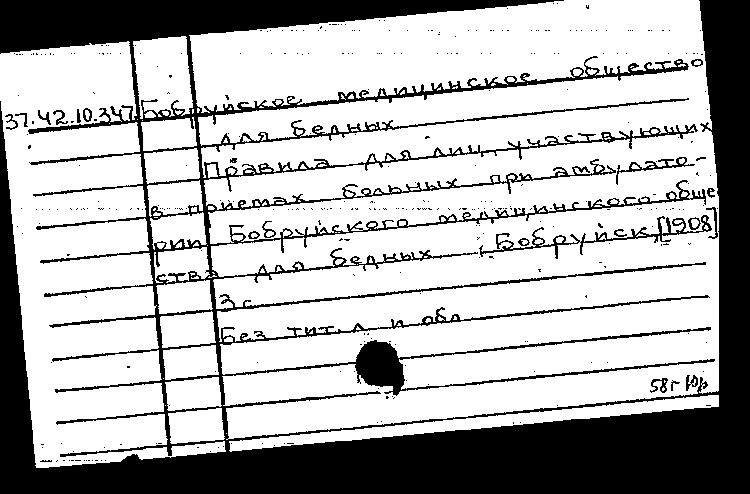 37.42.10.347 Бобруйское медицинское общество
для бедных
Правила для лиц, участвующих
в приемах больных при амбулато-
рии Бобруйского медицинского обще-
ства для бедных. Бобруйск, [1908]
3 с.
Без тит. л. и обл
58г Юр